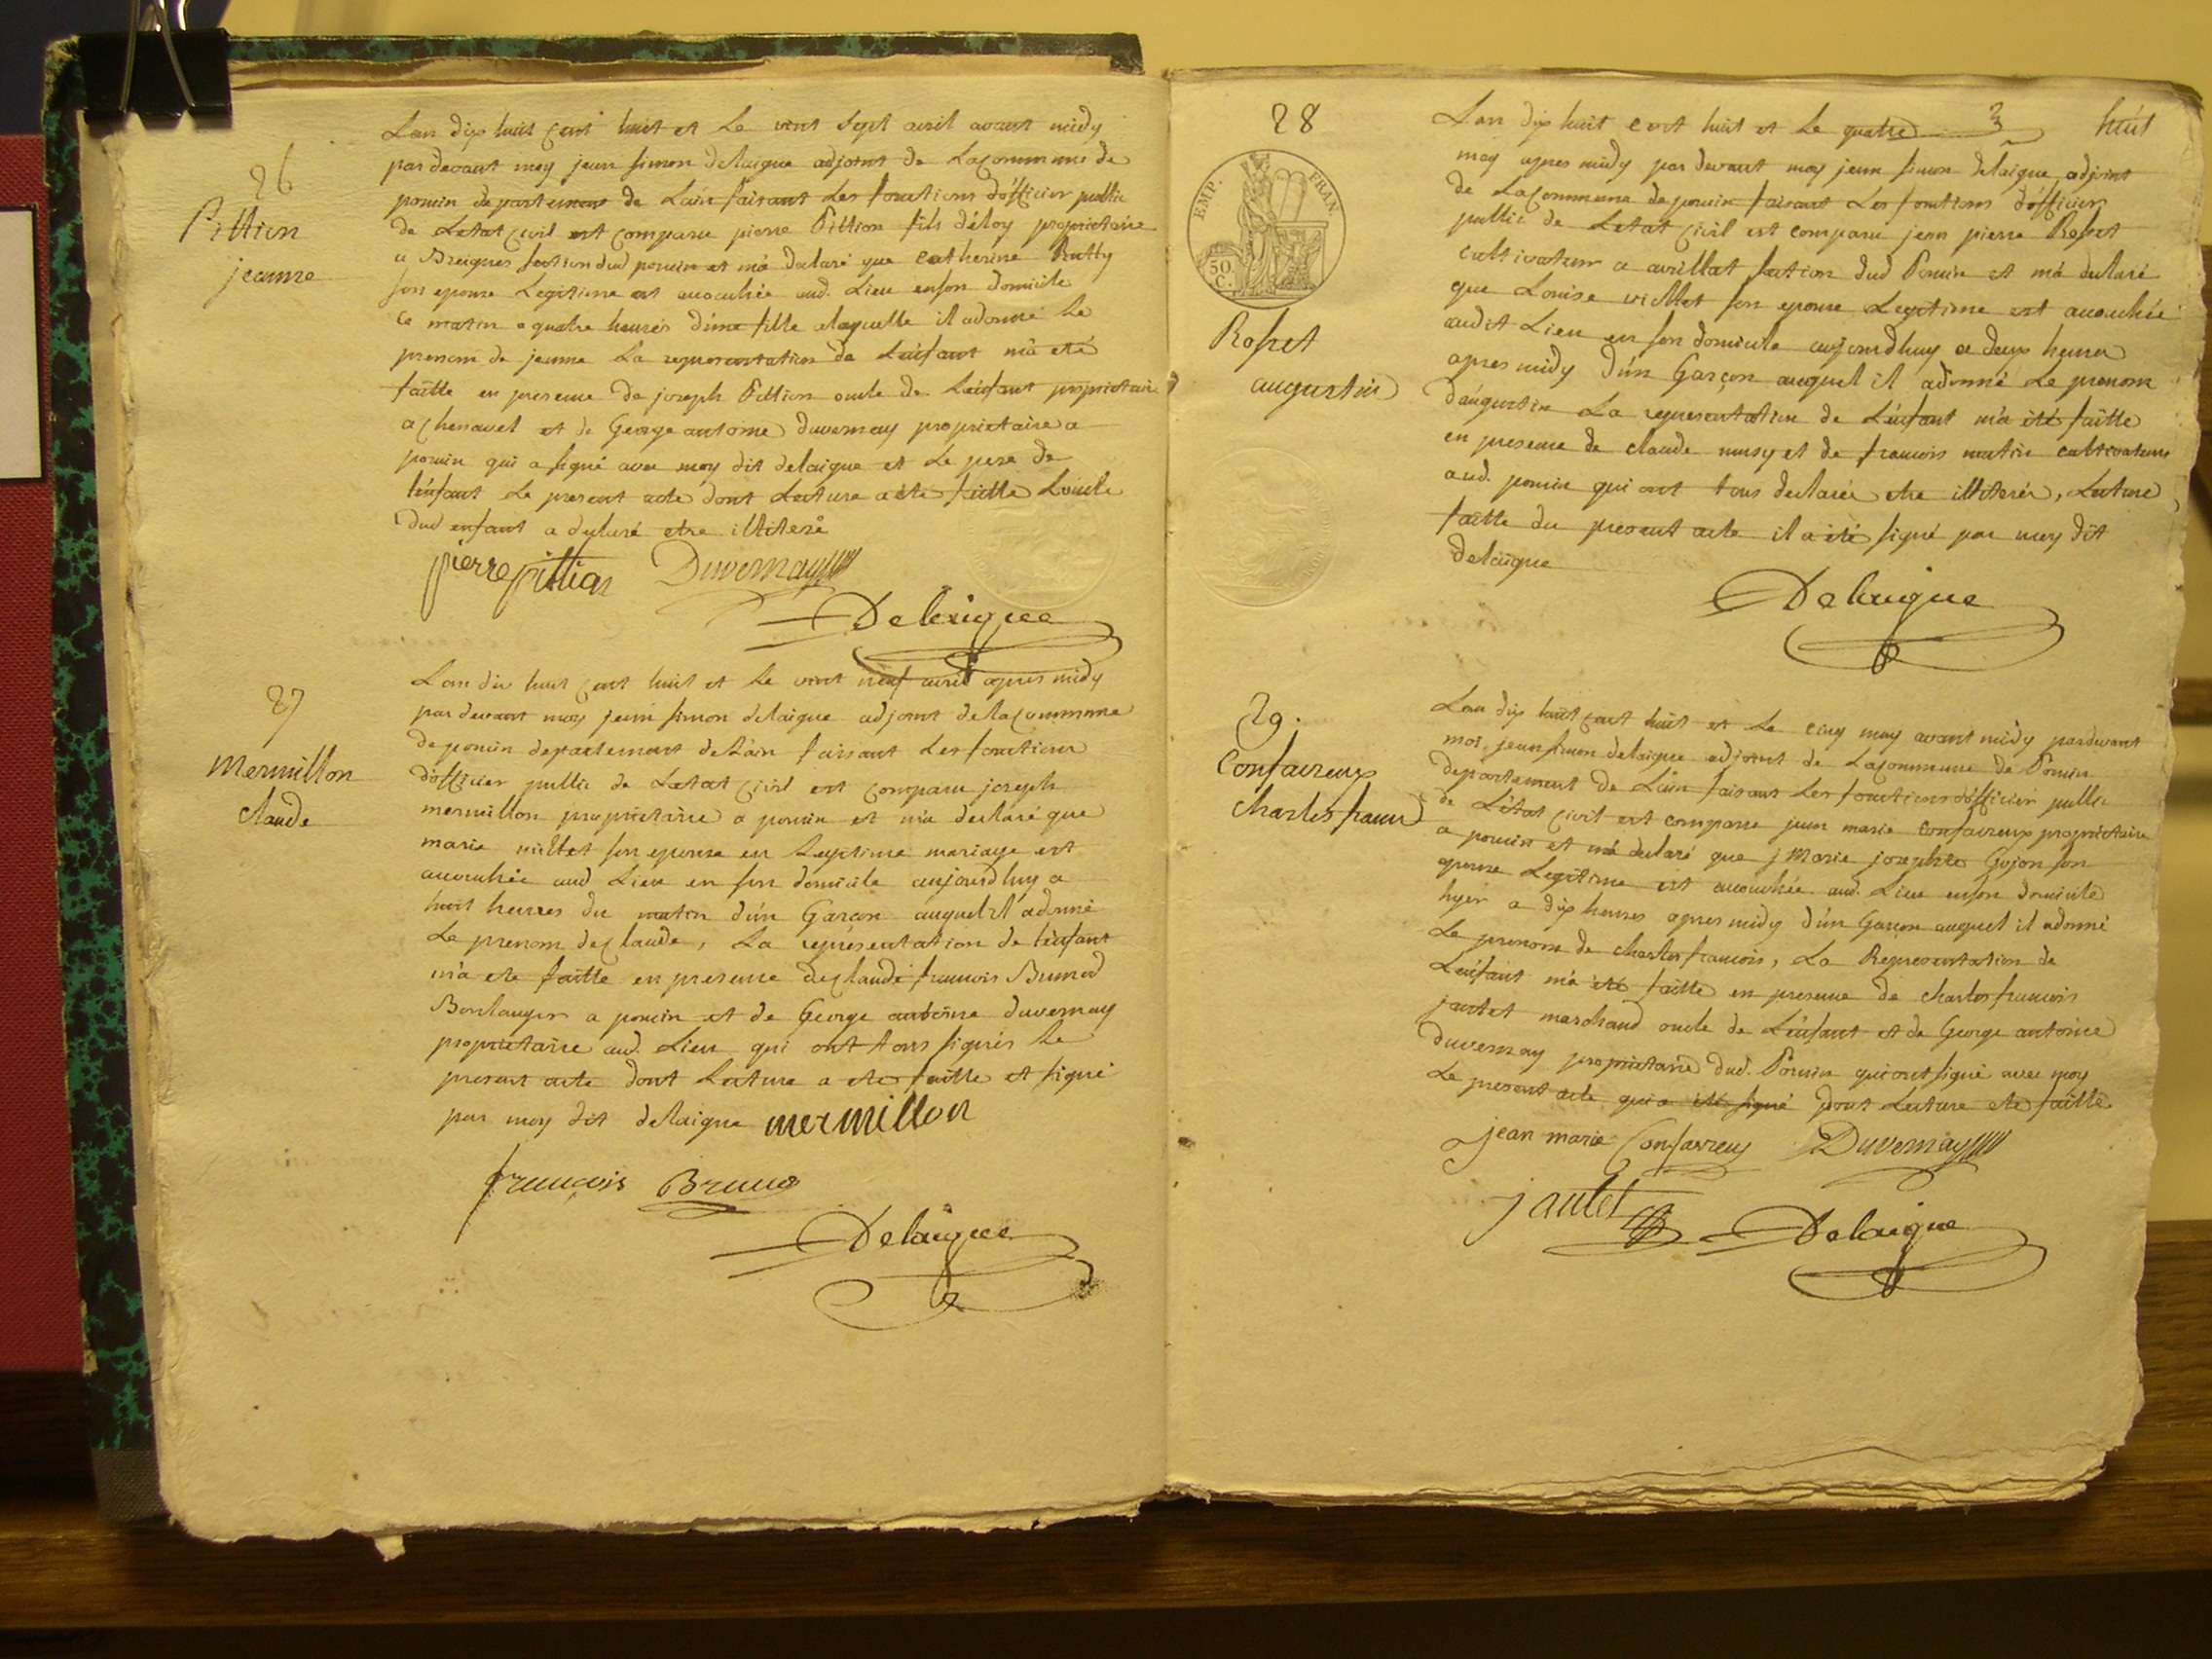 26
Pittion
jeanne
Lan dix huit cent huit et le vint sept avril avant midy
par devant moy jean simon delaigue adjoint de la commune de
poncin departement de Lain faisant les fonctions d'officier public
de Letat civil est comparu pierre Pittion fils d'éloy proprietaire
a Breignes section dud poncin et m'a declaré que Catherine Rutty
son epouse Legitime est accouchée aud. Lieu en son domicile
ce matin a quatre heures d'une fille alaquelle il a donné le
prenom de jeanne La representation de L'enfant m'a eté
faitte en presence de joseph Pittion oncle de L'enfant proprietaire
a chenavel et de George antoine duvernay proprietaire a
poncin qui a signé avec moy dit delaigue et Le pere de
l'enfant Le present acte dont Lecture a eté faitte Loncle
dud enfant a declaré etre illiteré
pierre pittion Duvernay
Delaigue
27
Mermillon
claude
Lan dix huit cent huit et le vint neuf avril apres midy
par devant moy jean simon delaigue adjoint de la commune
de poncin departement de Lain faisant Les fonctions
d'officier public de Letat civil est comparu joseph
mermillon proprietaire a poncin et m'a declaré que
marie millet son epouse en Legitime mariage est
accouchée aud Lieu en son domicile aujourdhuy a
huit heures du matin d'un Garcon auquel il a donné
Le prenom de claude, La representation de l'enfant
m'a ete faitte en presence de claude francois Brunod
Boulanger a poncin et de George antoine duvernay
proprietaire aud. Lieu qui ont tous signés le
present acte dont Lecture a ete faitte et signé
par moy dit delaigue mermillon
francois Bruno
Delaigue
28
EMP. FRAN.
50 C.
Rosset
augustin
Lan dix huit cent huit et le quatre huit
may apres midy par devant moy jean simon delaigue adjoint
de La Commune de poncin faisant Les fonctions d'officier
public de Letat civil est comparu jean pierre Rosset
cultivateur a avrillat section dud Poncin et m'a declaré
que Louise villet son epouse Legitime est accouchée
audit Lieu en son domicile aujourdhuy a deux heures
apres midy d'un Garçon auquel il a donné Le prenom
d'augustin La representation de L'enfant m'a été faitte
en presence de claude musy et de francois matin cultivateurs
aud. poncin qui ont tous declarés etre illiterés, Lecture
faitte du present acte il a été signé par moy dit
delaigue
Delaigue
29.
Confavreux
charles francois
Lan dix huit cent huit et Le cinq may avant midy pardevant
moi, jean simon delaigue adjoint de La commune de Poncin
departement de Lain faisant Les fonctions d'officier public
de L'état civil est comparu jean marie Confavreux proprietaire
a poncin et m'a declaré que j Marie josephte Gojon son
epouse Legitime est accouchée aud. Lieu en son domicile
hyer a dix heures apres midy d'un Garcon auquel il a donné
Le prenom de charles francois, La Representation de
L'enfant m'a été faitte en presence de charles francois
jautet marchand oncle de L'enfant et de George antoine
duvernay proprietaire dud. Poncin qui ont signé avec moy
Le present acte qui a été signé dont Lecture ete faitte
jean marie Confavreux Duvernay
jautet Delaigue